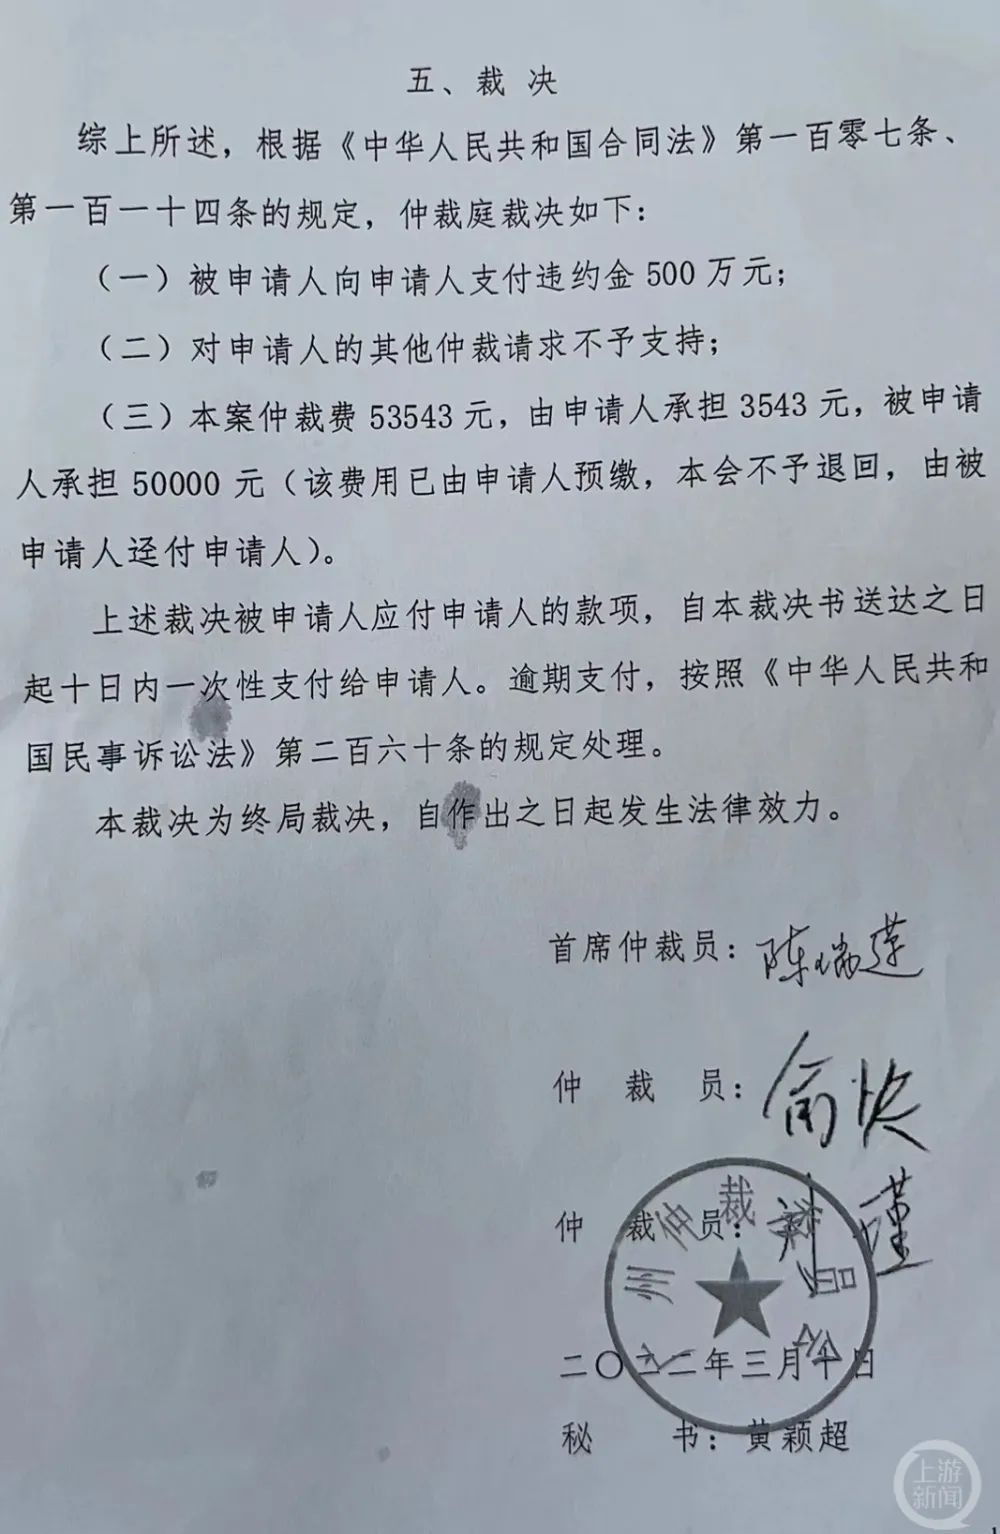 五、裁 决
综上所述，根据《中华人民共和国合同法》第一百零七条、
第一百一十四条的规定，仲裁庭裁决如下：
（一）被申请人向申请人支付违约金 500 万元；
（二）对申请人的其他仲裁请求不予支持；
（三）本案仲裁费 53543 元，由申请人承担 3543 元，被申请
人承担 50000 元（该费用已由申请人预缴，本会不予退回，由被
申请人迳付申请人）。
上述裁决被申请人应付申请人的款项，自本裁决书送达之日
起十日内一次性支付给申请人。逾期支付，按照《中华人民共和
国民事诉讼法》第二百六十条的规定处理。
本裁决为终局裁决，自作出之日起发生法律效力。
首席仲裁员：陈瑞莲
仲 裁 员：俞
仲 裁 员：刘瑾
州仲裁委员会
二〇二二年三月 日
秘 书：黄颖超
上游
新闻